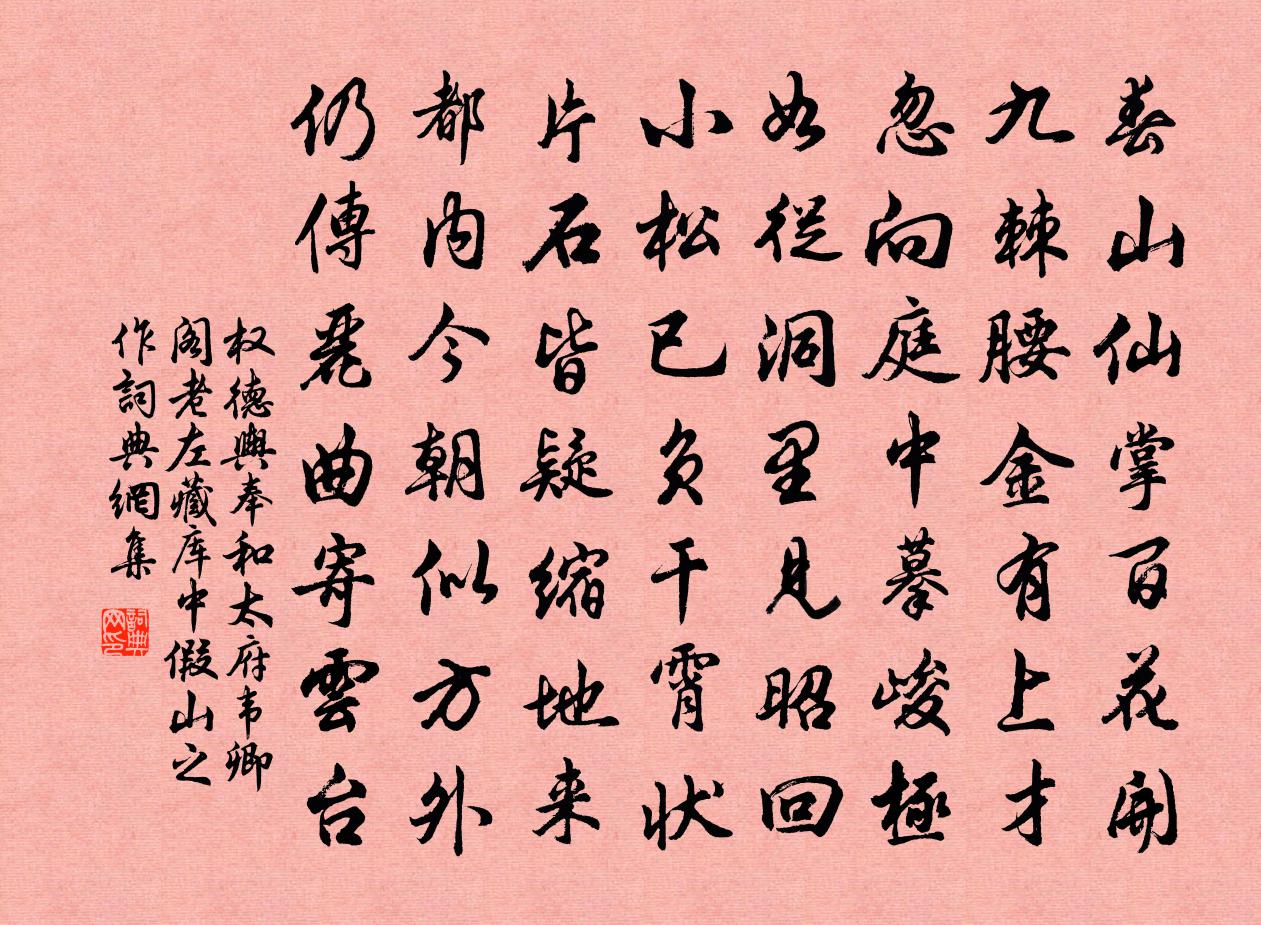 春山仙掌百花開
九棘腰金有上才
忽向庭中摹峻極
如從洞里見昭回
小松已負干霄狀
片石皆疑縮地来
都内今朝似方外
仍傳麗曲寄雲台
权德輿奉和太府韦卿
阁老左藏库中假山之
作詞典網集
詞典
网印